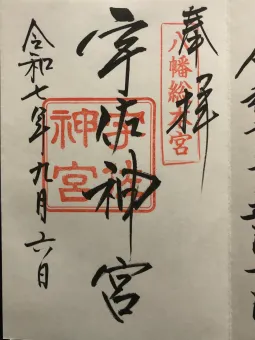 奉拝
八幡総本宮
宇佐神宮
宇佐神宮
令和七年九月六日